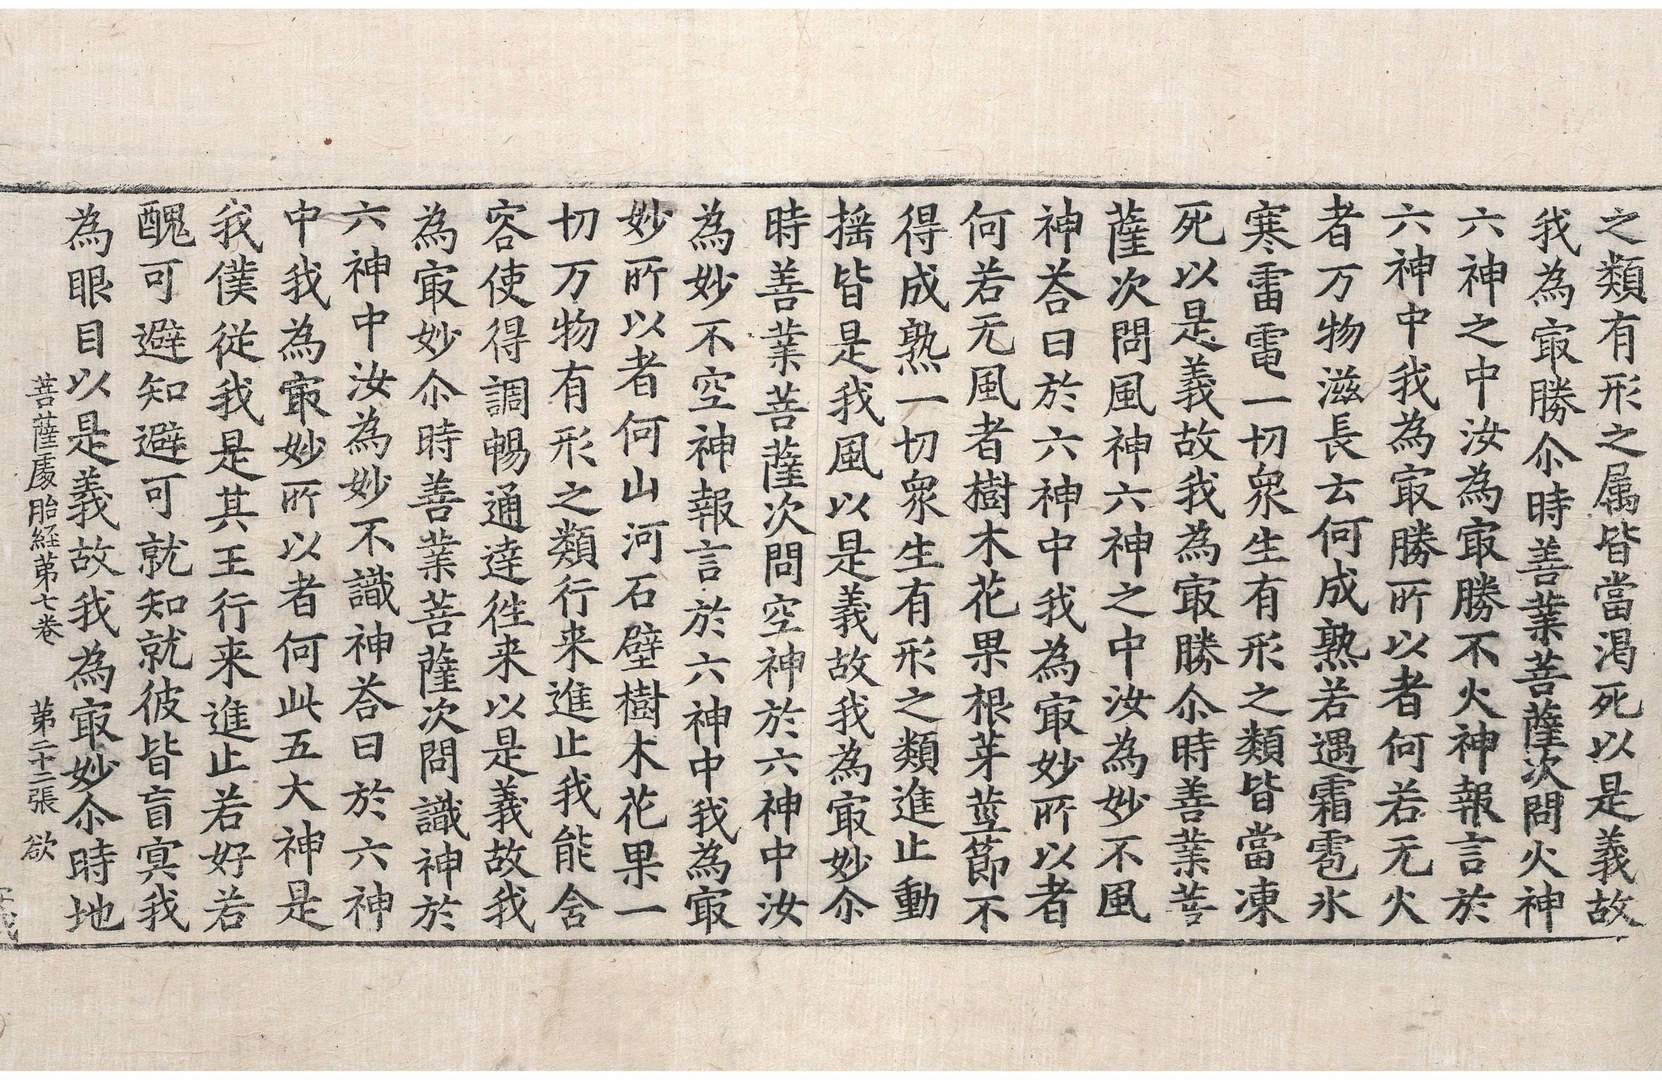 之類有形之属皆當渴死以是義故
我為㝡勝尒時善業菩薩次問火神
六神之中汝為㝡勝不火神報言於
六神中我為㝡勝所以者何若无火
者万物滋長云何成熟若遇霜雹氷
寒雷電一切衆生有形之類皆當凍
死以是義故我為㝡勝尒時善業菩
薩次問風神六神之中汝為妙不風
神荅曰於六神中我為㝡妙所以者
何若无風者樹木花果根芽莖節不
得成熟一切衆生有形之類進止動
揺皆是我風以是義故我為㝡妙尒
時善業菩薩次問空神於六神中汝
為妙不空神報言於六神中我為㝡
妙所以者何山河石壁樹木花果一
切万物有形之類行来進止我能含
容使得調暢通達徃来以是義故我
為㝡妙尒時善業菩薩次問識神於
六神中汝為妙不識神荅曰於六神
中我為㝡妙所以者何此五大神是
我僕從我是其王行来進止若好若
醜可避知避可就知就彼皆盲㝠我
為眼目以是義故我為㝡妙尒時地
菩薩處胎経苐七巻 第二十二張 欲